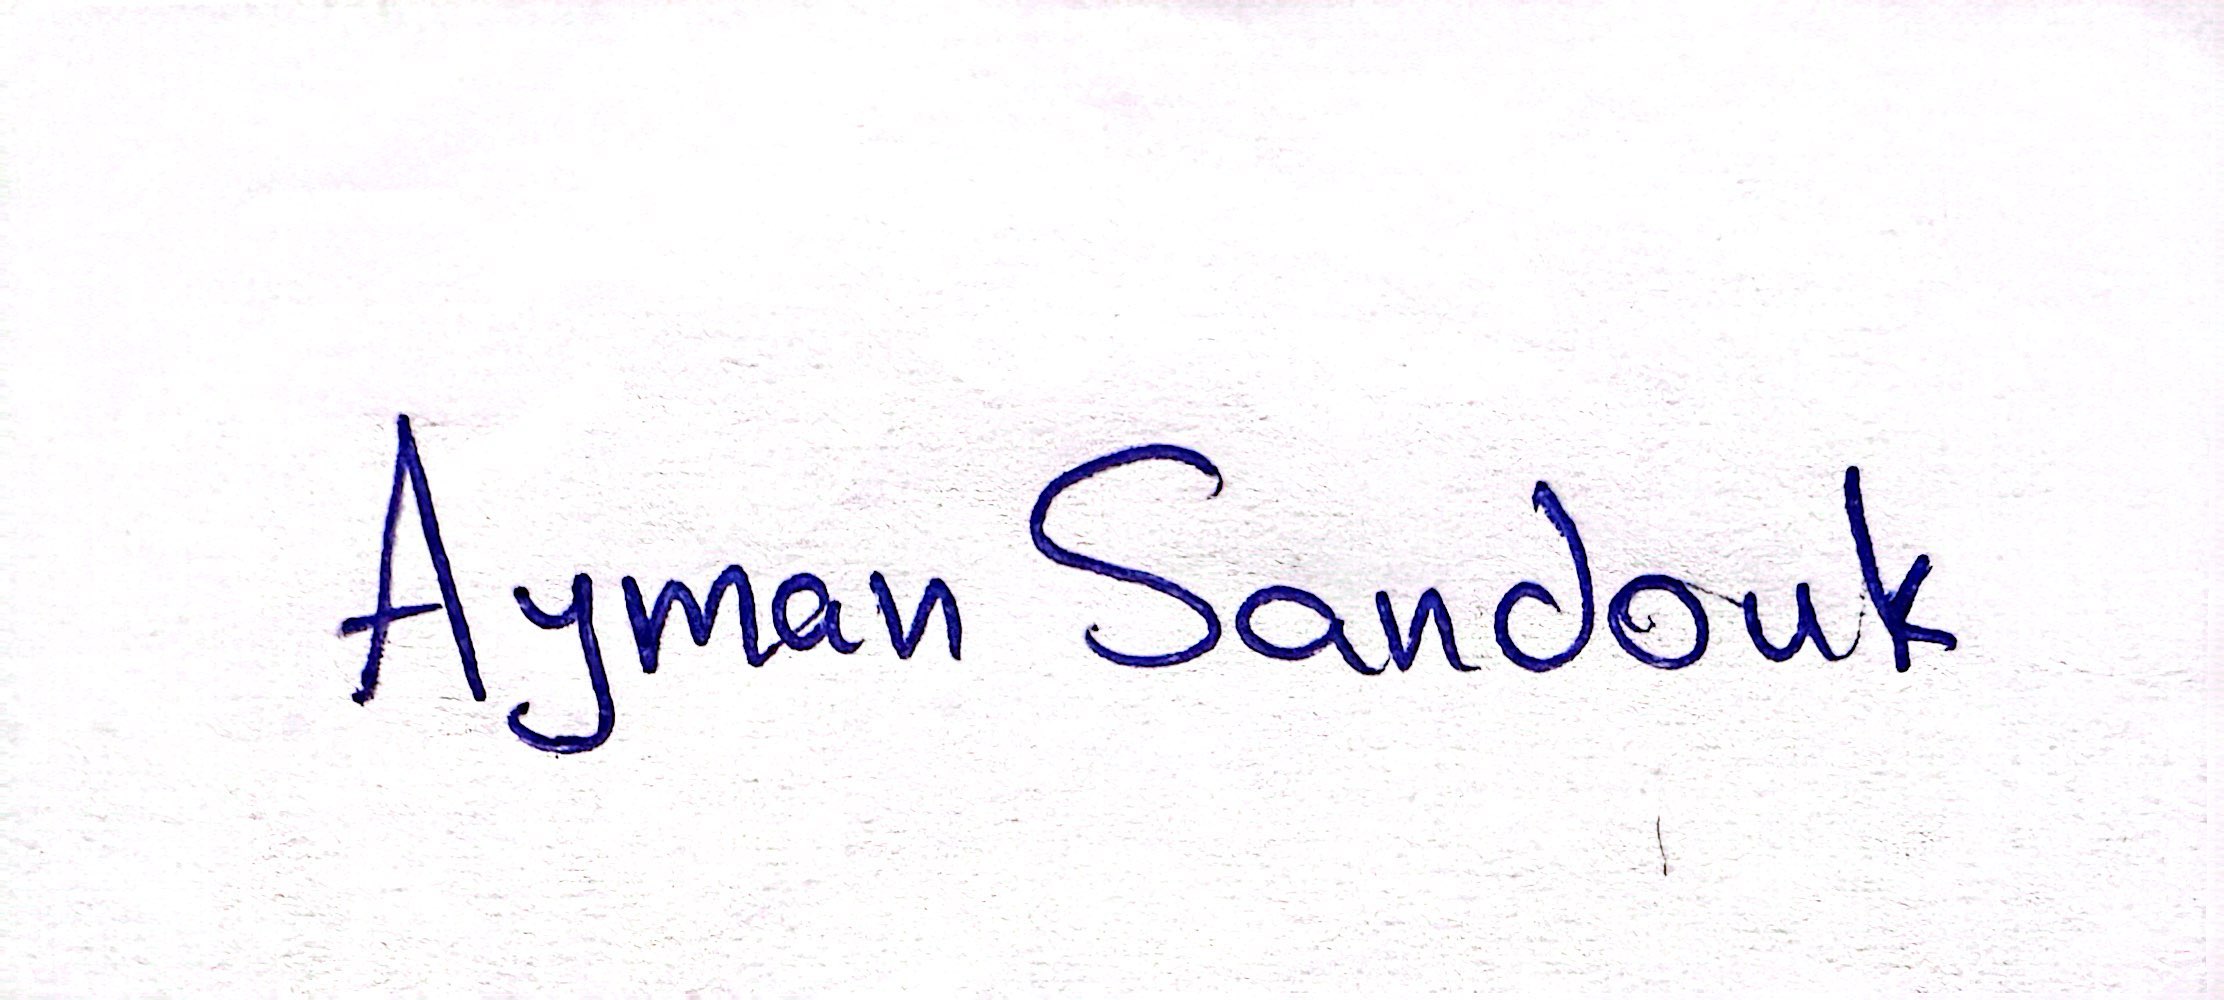 Ayman Sandouk